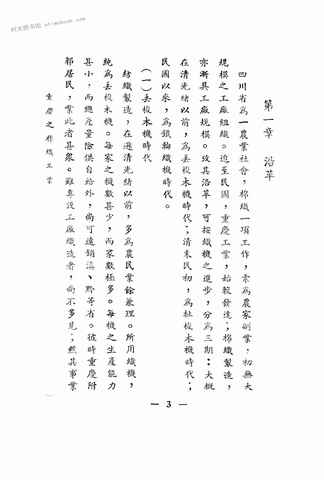 第一章　沿革
四川省為一農業社會，棉織一項工作，素為農家副業，初無大
規模之工廠組織。迨至民國，重慶工業，始較發達；棉織製造，
亦漸具工廠規模。攷其沿革，可按織機之進步，分為三期：大概
在清光緒以前，為丟梭木機時代；清末民初，為扯梭木機時代；
民國以來，為鐵輪織機時代。
(一)丟梭木機時代
紡織製造，在遜清光緒以前，多為農民業餘兼理。所用織機，
純為丟梭木機。每家之機數甚少，而家數極多。每機之生產能力
甚小，而總產量除供自給外，尚可遠銷滇、黔等省。彼時重慶附
郭居民，業此者甚衆。雖專設工廠織造者，尚不多見；然其事業
重慶之棉織工業
— 3 —